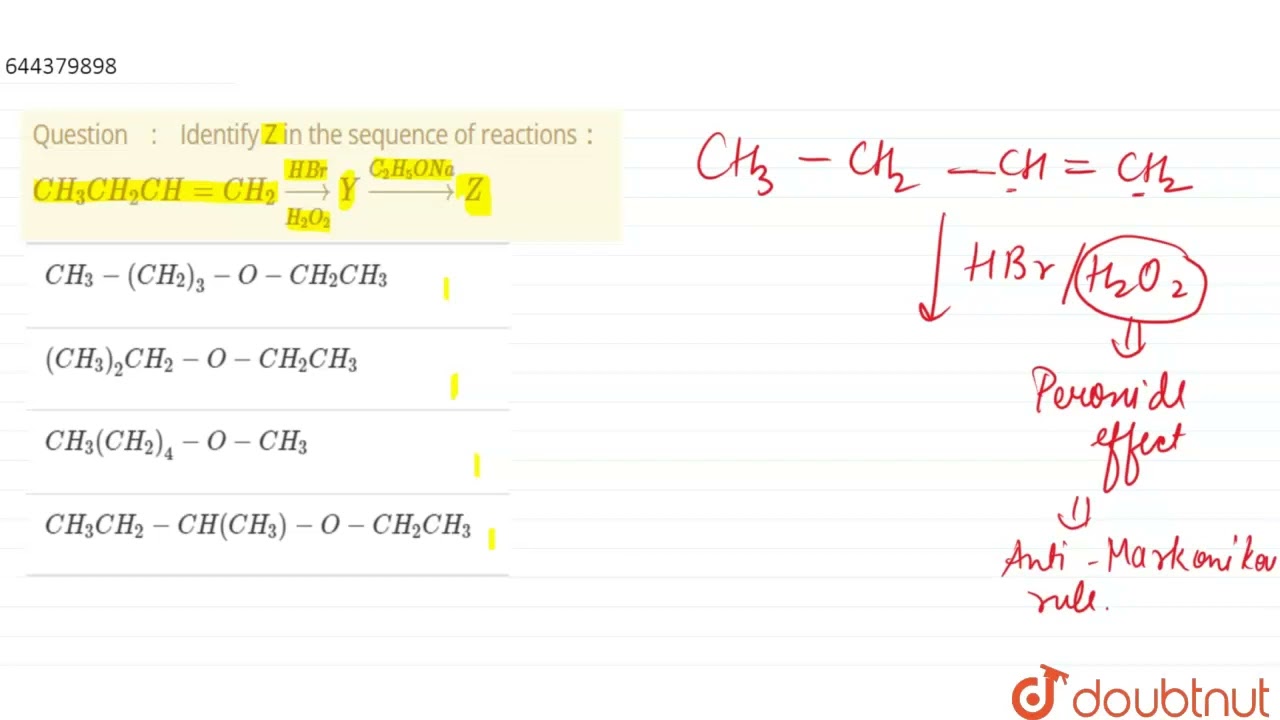 644379898
Question : Identify Z in the sequence of reactions :
CH₃CH₂CH = CH₂ \xrightarrow[H₂O₂]{HBr} Y \xrightarrow{C₂H₅ONa} Z
CH₃ − (CH₂)₃ − O − CH₂CH₃
(CH₃)₂CH₂ − O − CH₂CH₃
CH₃(CH₂)₄ − O − CH₃
CH₃CH₂ − CH(CH₃) − O − CH₂CH₃
CH₃ − CH₂ − CH = CH₂
↓ HBr/H₂O₂
⇓
Peroxide
effect
⇓
Anti - Markonikov
rule.
doubtnut